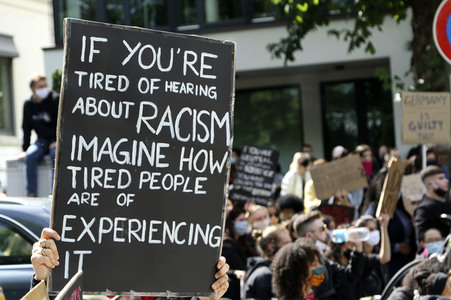 IF YOU'RE
TIRED OF HEARING
ABOUT RACISM
IMAGINE HOW
TIRED PEOPLE
ARE OF
EXPERIENCING
IT
GERMANY
IS
GUILTY
TOO